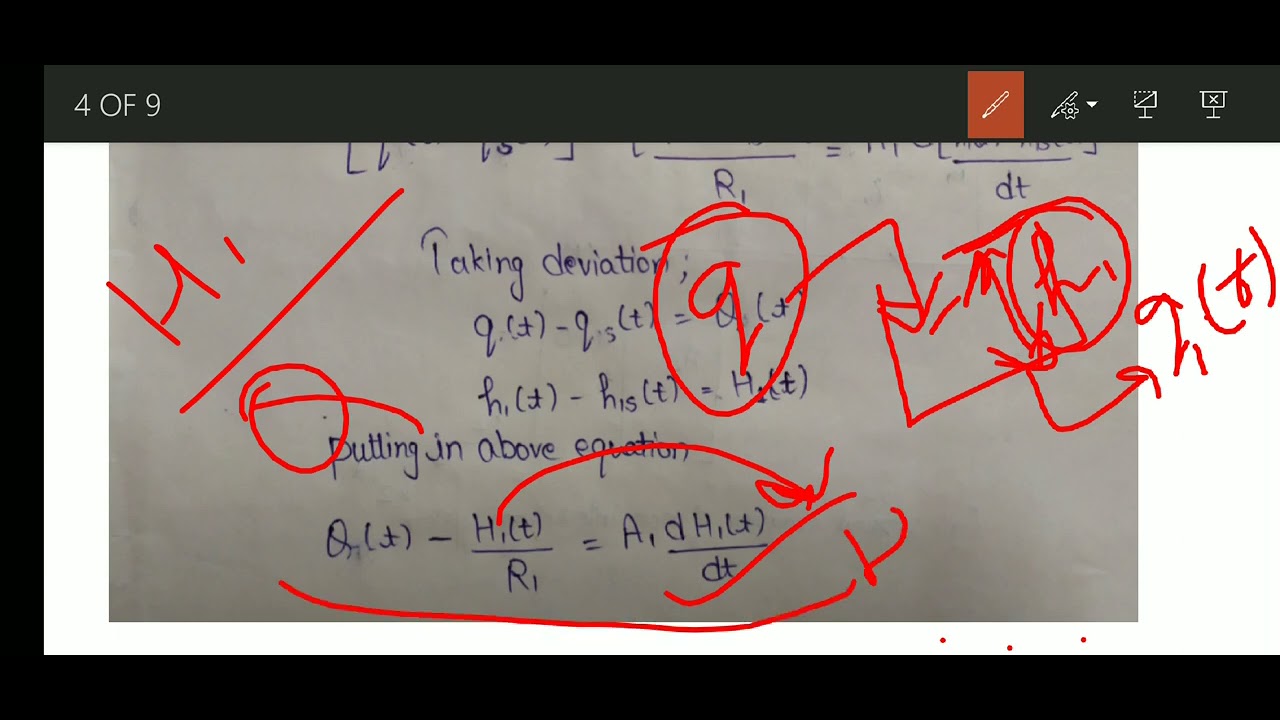 4 OF 9
R₁ dt
Taking deviation;
q(t) - q·s(t) = Q(t)
h₁(t) - h₁s(t) = H₁(t)
putting in above equation
Q(t) - H₁(t)/R₁ = A₁ dH₁(t)/dt
H₁
q
h₁
q₁(t)